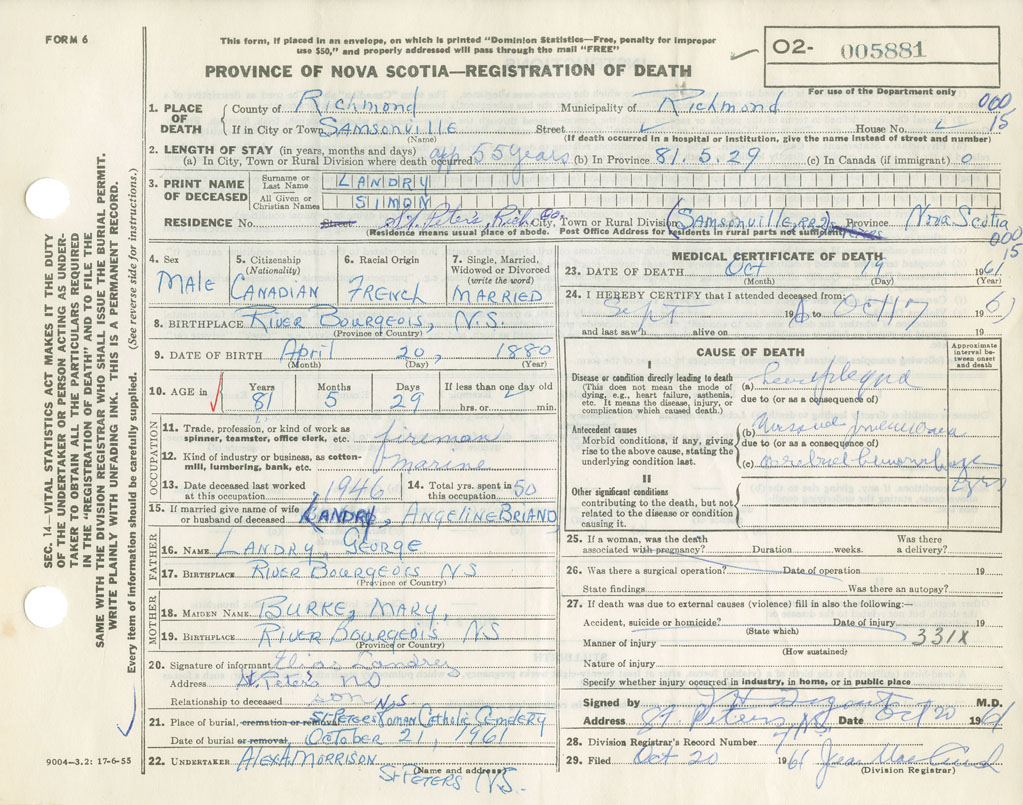 FORM 6
This form, if placed in an envelope, on which is printed "Dominion Statistics—Free, penalty for improper
use $50," and properly addressed will pass through the mail "FREE"
02- 005881
PROVINCE OF NOVA SCOTIA—REGISTRATION OF DEATH
For use of the Department only
1. PLACE OF DEATH County of Richmond Municipality of Richmond 000
15
If in City or Town SAMSONVILLE Street House No.
(Name) (If death occurred in a hospital or institution, give the name instead of street and number)
2. LENGTH OF STAY (in years, months and days)
(a) In City, Town or Rural Division where death occurred app 55 years (b) In Province 81. 5. 29 (c) In Canada (if immigrant) 0
3. PRINT NAME OF DECEASED
Surname or Last Name LANDRY
All Given or Christian Names SIMON
RESIDENCE No. Street St. Peter's, Rich Co, City, Town or Rural Division (SAMSONVILLE, RR2) Province Nova Scotia
(Residence means usual place of abode. Post Office Address for residents in rural parts not sufficient)
000
15
4. Sex MALE
5. Citizenship (Nationality) CANADIAN
6. Racial Origin FRENCH
7. Single, Married, Widowed or Divorced (write the word) MARRIED
8. BIRTHPLACE RIVER BOURGEOIS, N.S.
(Province or Country)
9. DATE OF BIRTH April 20, 1880
(Month) (Day) (Year)
10. AGE in Years 81 Months 5 Days 29 If less than one day old
hrs. or min.
OCCUPATION
11. Trade, profession, or kind of work as spinner, teamster, office clerk, etc. fireman
12. Kind of industry or business, as cotton-mill, lumbering, bank, etc. marine
13. Date deceased last worked at this occupation 1946
14. Total yrs. spent in this occupation 50
15. If married give name of wife or husband of deceased (LANDRY), ANGELINE BRIAND
FATHER
16. NAME LANDRY, GEORGE
17. BIRTHPLACE RIVER BOURGEOIS NS
(Province or Country)
MOTHER
18. MAIDEN NAME BURKE, MARY,
19. BIRTHPLACE RIVER BOURGEOIS NS
(Province or Country)
20. Signature of informant Elias Landry
Address St. Peter's NS
Relationship to deceased son N.S.
21. Place of burial, cremation or removal ST PETERS Roman Catholic Cemetery
Date of burial or removal October 21, 1961
22. UNDERTAKER ALEX A. MORRISON
(Name and address)
ST PETERS N.S.
MEDICAL CERTIFICATE OF DEATH
23. DATE OF DEATH Oct 19 1961
(Month) (Day) (Year)
24. I HEREBY CERTIFY that I attended deceased from:
Sept 19 to Oct 17 61
and last saw h alive on 19
CAUSE OF DEATH
Approximate interval between onset and death
I
Disease or condition directly leading to death
(This does not mean the mode of dying, e.g., heart failure, asthenia, etc. It means the disease, injury, or complication which caused death.)
(a) hemiplegia
due to (or as a consequence of)
Antecedent causes
Morbid conditions, if any, giving rise to the above cause, stating the underlying condition last.
(b)
due to (or as a consequence of)
(c) cerebral hemorrhage
yrs
II
Other significant conditions
contributing to the death, but not related to the disease or condition causing it.
25. If a woman, was the death associated with pregnancy? Duration weeks. Was there a delivery?
26. Was there a surgical operation? Date of operation 19
State findings Was there an autopsy?
27. If death was due to external causes (violence) fill in also the following:—
Accident, suicide or homicide? Date of injury 19
(State which)
Manner of injury 331X
(How sustained)
Nature of injury
Specify whether injury occurred in industry, in home, or in public place
Signed by M.D.
Address St. Peters, N.S. Date Oct 20 1961
28. Division Registrar's Record Number
29. Filed Oct 20 1961 Jean
(Division Registrar)
SEC. 14—VITAL STATISTICS ACT MAKES IT THE DUTY
OF THE UNDERTAKER OR PERSON ACTING AS UNDER-
TAKER TO OBTAIN ALL THE PARTICULARS REQUIRED
IN THE "REGISTRATION OF DEATH" AND TO FILE THE
SAME WITH THE DIVISION REGISTRAR WHO SHALL ISSUE THE BURIAL PERMIT.
WRITE PLAINLY WITH UNFADING INK. THIS IS A PERMANENT RECORD.
Every item of information should be carefully supplied. (See reverse side for instructions.)
9004—3.2: 17-6-55